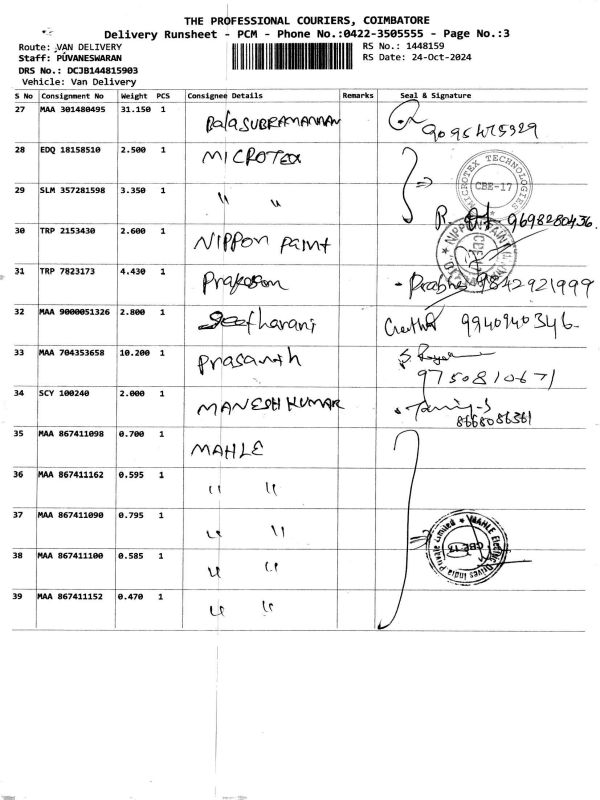 THE PROFESSIONAL COURIERS, COIMBATORE
Delivery Runsheet - PCM - Phone No.:0422-3505555 - Page No.:3
Route: VAN DELIVERY RS No.: 1448159
Staff: PUVANESWARAN RS Date: 24-Oct-2024
DRS No.: DCJB144815903
Vehicle: Van Delivery
S No Consignment No Weight PCS Consignee Details Remarks Seal & Signature
27 MAA 301480495 31.150 1 BalaSUBRAMANNAN
9095475329
28 EDQ 18158510 2.500 1 MICROTEX
MICROTEX TECHNOLOGIES
CBE-17
29 SLM 357281598 3.350 1 〃 〃
9698280436.
30 TRP 2153430 2.600 1 NIPPON Paint
31 TRP 7823173 4.430 1 Prakasam Prabhu 9842921999
32 MAA 9000051326 2.800 1 Geetharani 9940940346-
33 MAA 704353658 10.200 1 Prasanth
9750810671
34 SCY 100240 2.000 1 MANESH KUMAR
8668086361
35 MAA 867411098 0.700 1 MAHLE
36 MAA 867411162 0.595 1 〃 〃
37 MAA 867411090 0.795 1 〃 〃
MAHLE Electric Drives India Private Limited
38 MAA 867411100 0.585 1 〃 〃
39 MAA 867411152 0.470 1 〃 〃